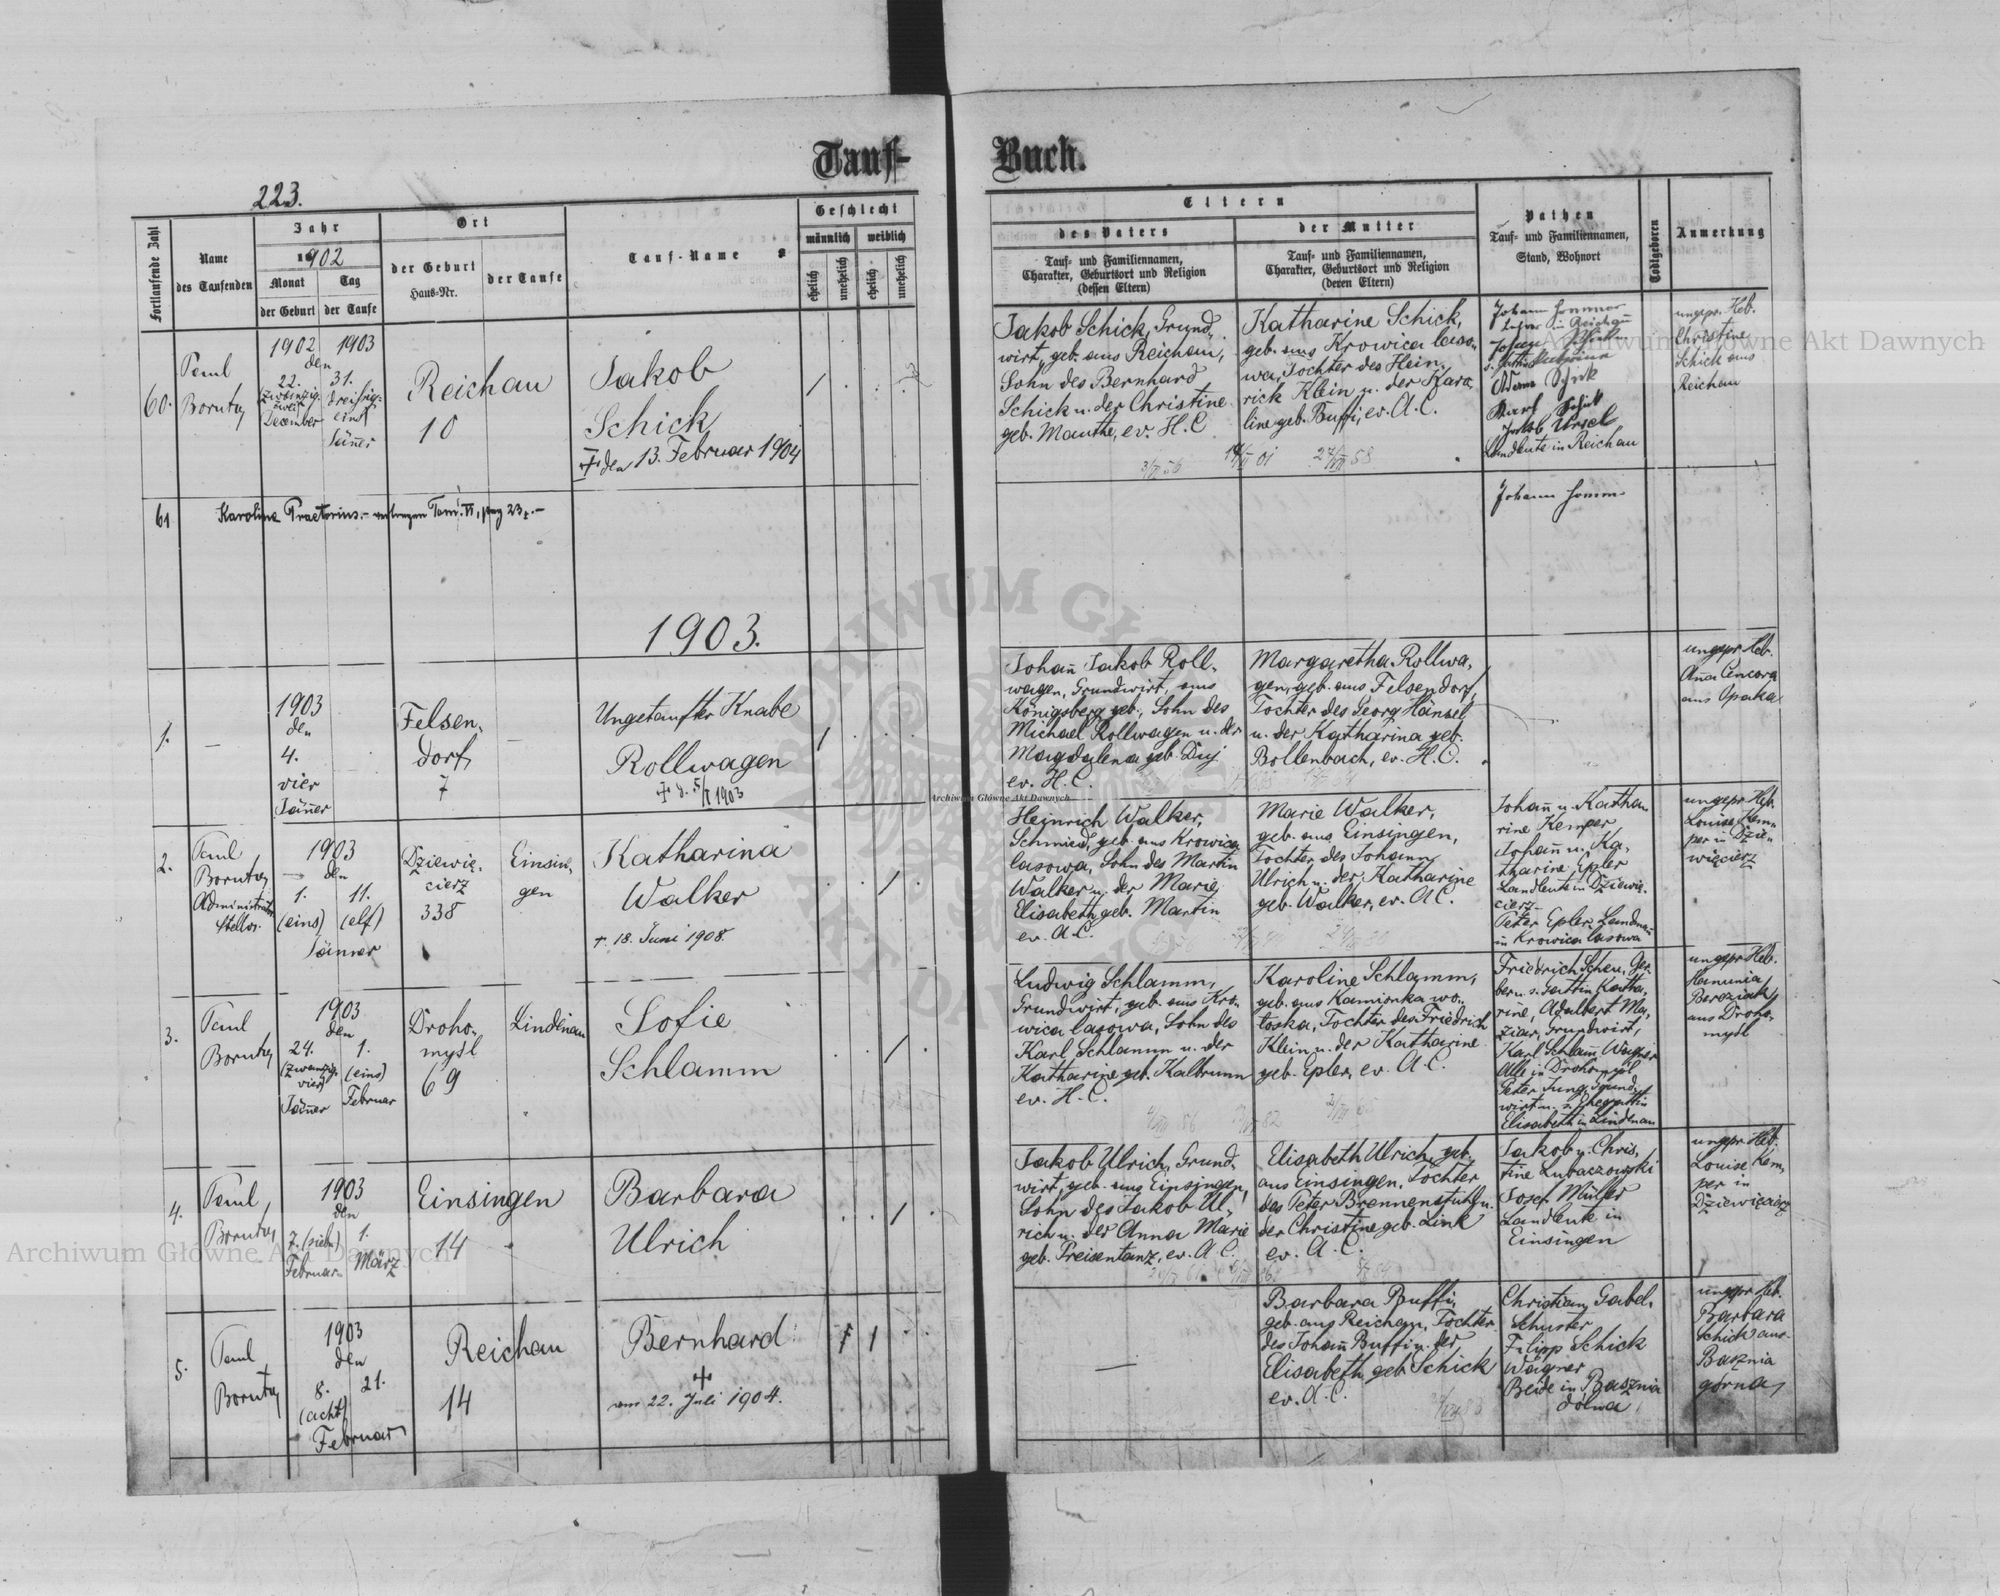 Tauf-Buch.
223.
Fortlaufende Zahl
Name
des Taufenden
Jahr
1902
Monat
Tag
der Geburt
der Taufe
Ort
der Geburt
Haus-Nr.
der Taufe
Tauf-Name
Geschlecht
männlich
weiblich
ehelich
unehelich
ehelich
unehelich
Eltern
des Vaters
Tauf- und Familiennamen,
Charakter, Geburtsort und Religion
(dessen Eltern)
der Mutter
Tauf- und Familiennamen,
Charakter, Geburtsort und Religion
(deren Eltern)
Pathen
Tauf- und Familiennamen,
Stand, Wohnort
Todtgeboren
Anmerkung
60.
Paul
Borntey
1902 1903
den
22. 31.
(zwanzig- dreißig-
zwei) eins
December Jänner
Reichau
10
Jakob
Schick
† den 13. Februar 1904
Jakob Schick, Grund-
wirt, geb. aus Reichau,
Sohn des Bernhard
Schick u. der Christine
geb. Mauthe, ev. H.C.
Katharine Schick,
geb. aus Krowica laso-
wa, Tochter des Hein-
rick Klein u. der Karo-
line geb. Buffi, ev. A.C.
Johann Hommer
Lehrer in Reichau
Adam Schick
Karl Schick
Jakob Ursel
Landleute in Reichau
ungepr. Heb.
Christine
Schick aus
Reichau
61
Karoline Praetorius.- Tom. VI, pag 23
Johann Homm
1903.
1.
1903
den
4.
vier
Jänner
Felsen-
dorf
7
Ungetaufter Knabe
Rollwagen
† d. 5/I 1903
Johañ Jakob Roll-
wagen, Grundwirt, aus
Königsberg geb., Sohn des
Michael Rollwagen u. der
Magdalena geb. Duj
ev. H.C.
Margaretha Rollwa-
gen, geb. aus Felsendorf,
Tochter des Georg Hänsel
u. der Katharina geb.
Bollenbach, ev. H.C.
ungepr. Heb.
Ana Cencora
aus Opaka
2.
Paul
Borntey
Administrator
Stellv.
1903
den
1. 11.
(eins) (elf)
Jänner
Dziewię-
cierz
338
Einsin-
gen
Katharina
Walker
† 18. Juni 1908.
Heinrich Walker,
Schmied, geb. aus Krowica
lasowa, Sohn des Martin
Walker u. der Marie
Elisabeth geb. Martin
ev. A.C.
Marie Walker,
geb. aus Einsingen,
Tochter des Johann
Ulrich u. der Katharine
geb. Walker, ev. A.C.
Johañ u. Katha-
rine Kemper
Johañ u. Ka-
tharine Epler
Landleute in Dziewię-
cierz
Peter Epler, Landmañ
in Krowica lasowa
ungepr. Heb.
Louise Kem-
per in Dzie-
więcierz
3.
Paul
Borntey
1903
den
24. 1.
(zwanzig- (eins)
vier)
Jänner Februar
Droho-
mysl
69
Lindenau
Sofie
Schlamm
Ludwig Schlamm,
Grundwirt, geb. aus Kro-
wica lasowa, Sohn des
Karl Schlamm u. der
Katharine geb. Kalbrunn
ev. H.C.
Karoline Schlamm,
geb. aus Kamionka wo-
loska, Tochter des Friedrich
Klein u. der Katharine
geb. Epler, ev. A.C.
Friedrich Scheu, Ger-
ber u. s. Gattin Katha-
rine, Adalbert Ma-
ziar, Grundwirt,
Karl Schlam̃ Wagner
Alle in Drohomysl
Peter Jung, Grund-
wirt u. s. Ehegattin
Elisabeth in Lindenau
ungepr. Heb.
Hanunia
Beroziak
aus Droho-
mysl
4.
Paul
Borntey
1903
den
7. (sieben) 1.
Februar März
Einsingen
14
Barbara
Ulrich
Jakob Ulrich, Grund-
wirt, geb. aus Einsingen,
Sohn des Jakob Ul-
rich u. der Anna Marie
geb. Preisentanz, ev. A.C.
Elisabeth Ulrich, geb.
aus Einsingen, Tochter
des Peter Brennenstuhl u.
der Christine geb. Link
ev. A.C.
Jakob u. Chris-
tine Lubaczowski
Josef Müller
Landleute in
Einsingen
ungepr. Heb.
Louise Kem-
per in
Dziewięcierz
5.
Paul
Borntey
1903
den
8. 21.
(acht)
Februar
Reichau
14
Bernhard
†
am 22. Juli 1904.
Barbara Buffi,
geb. aus Reichau, Tochter
des Johañ Buffi u. der
Elisabeth geb. Schick
ev. A.C.
Christian Gabel,
Schuster
Filipp Schick
Wagner
Beide in Basznia
dolna
ungepr. Heb.
Barbara
Schick aus
Basznia
górna
Archiwum Główne Akt Dawnych
Archiwum Główne Akt Dawnych
Archiwum Główne Akt Dawnych